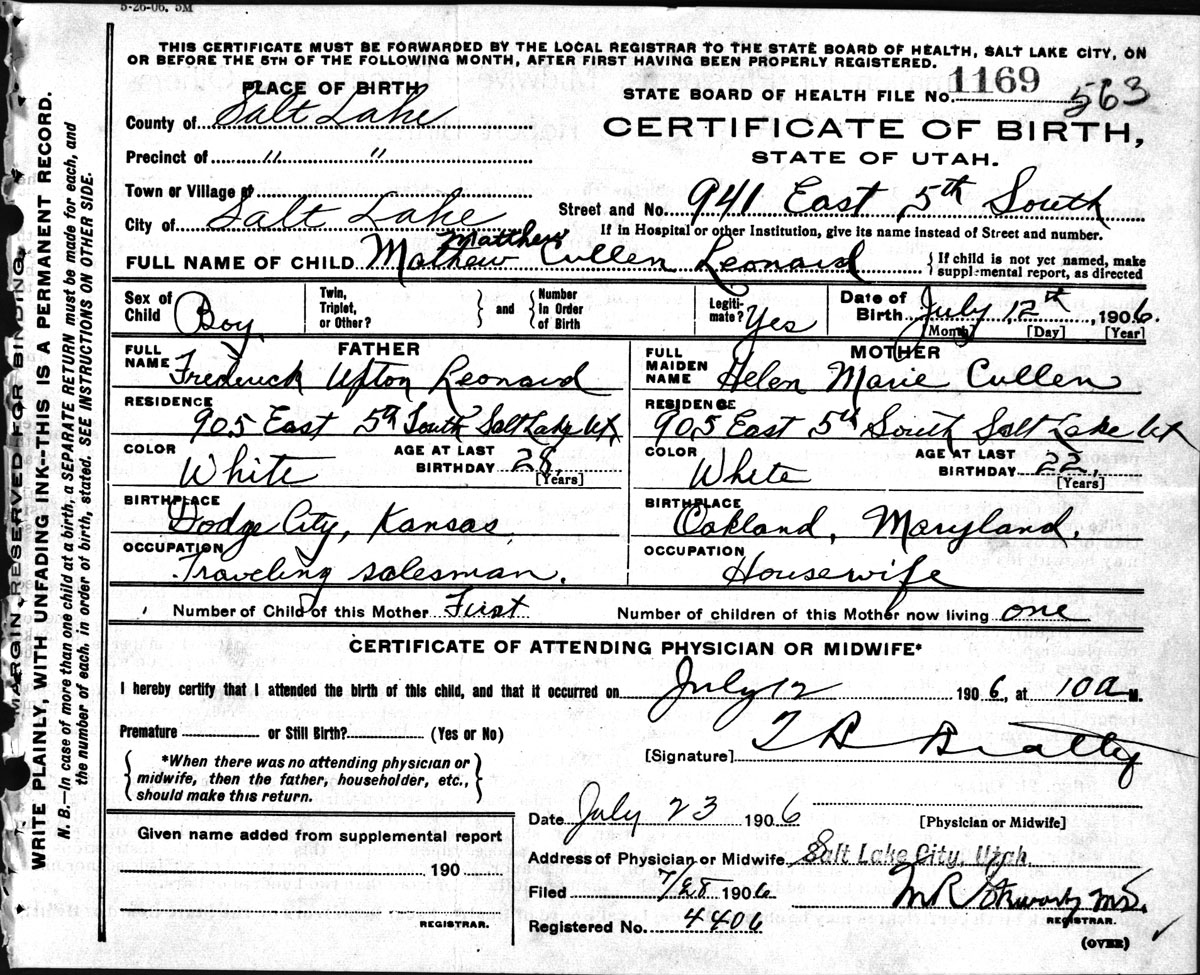 5-26-06. 5M
THIS CERTIFICATE MUST BE FORWARDED BY THE LOCAL REGISTRAR TO THE STATE BOARD OF HEALTH, SALT LAKE CITY, ON
OR BEFORE THE 5TH OF THE FOLLOWING MONTH, AFTER FIRST HAVING BEEN PROPERLY REGISTERED.
PLACE OF BIRTH
STATE BOARD OF HEALTH FILE No. 1169 563
County of Salt Lake
CERTIFICATE OF BIRTH,
STATE OF UTAH.
Precinct of " "
Town or Village of
Street and No. 941 East 5th South
City of Salt Lake
If in Hospital or other Institution, give its name instead of Street and number.
Matthew
FULL NAME OF CHILD Mathew Cullen Leonard
{If child is not yet named, make
supplemental report, as directed
Sex of Child Boy
Twin, Triplet, or Other?
} and {
Number in Order of Birth
Legitimate? Yes
Date of Birth July 12th, 1906.
[Month] [Day] [Year]
FATHER
FULL NAME Frederick Upton Leonard
RESIDENCE
905 East 5th South Salt Lake Ut.
COLOR White
AGE AT LAST BIRTHDAY 28,
[Years]
BIRTHPLACE
Dodge City, Kansas
OCCUPATION
Traveling salesman.
MOTHER
FULL MAIDEN NAME Helen Marie Cullen
RESIDENCE
905 East 5th South Salt Lake Ut
COLOR White
AGE AT LAST BIRTHDAY 22,
[Years]
BIRTHPLACE
Oakland, Maryland.
OCCUPATION
Housewife
Number of Child of this Mother First
Number of children of this Mother now living one
CERTIFICATE OF ATTENDING PHYSICIAN OR MIDWIFE*
I hereby certify that I attended the birth of this child, and that it occurred on July 12 1906, at 10 a M.
Premature or Still Birth? (Yes or No)
[Signature] Beatty
{*When there was no attending physician or
midwife, then the father, householder, etc.,
should make this return.}
Date July 23 1906
[Physician or Midwife]
Given name added from supplemental report
190
REGISTRAR.
Address of Physician or Midwife Salt Lake City, Utah
Filed 7/28 1906
REGISTRAR.
Registered No. 4406
(OVER)
MARGIN RESERVED FOR BINDING.
WRITE PLAINLY, WITH UNFADING INK--THIS IS A PERMANENT RECORD.
N. B.—In case of more than one child at a birth, a SEPARATE RETURN must be made for each, and
the number of each, in order of birth, stated. SEE INSTRUCTIONS ON OTHER SIDE.